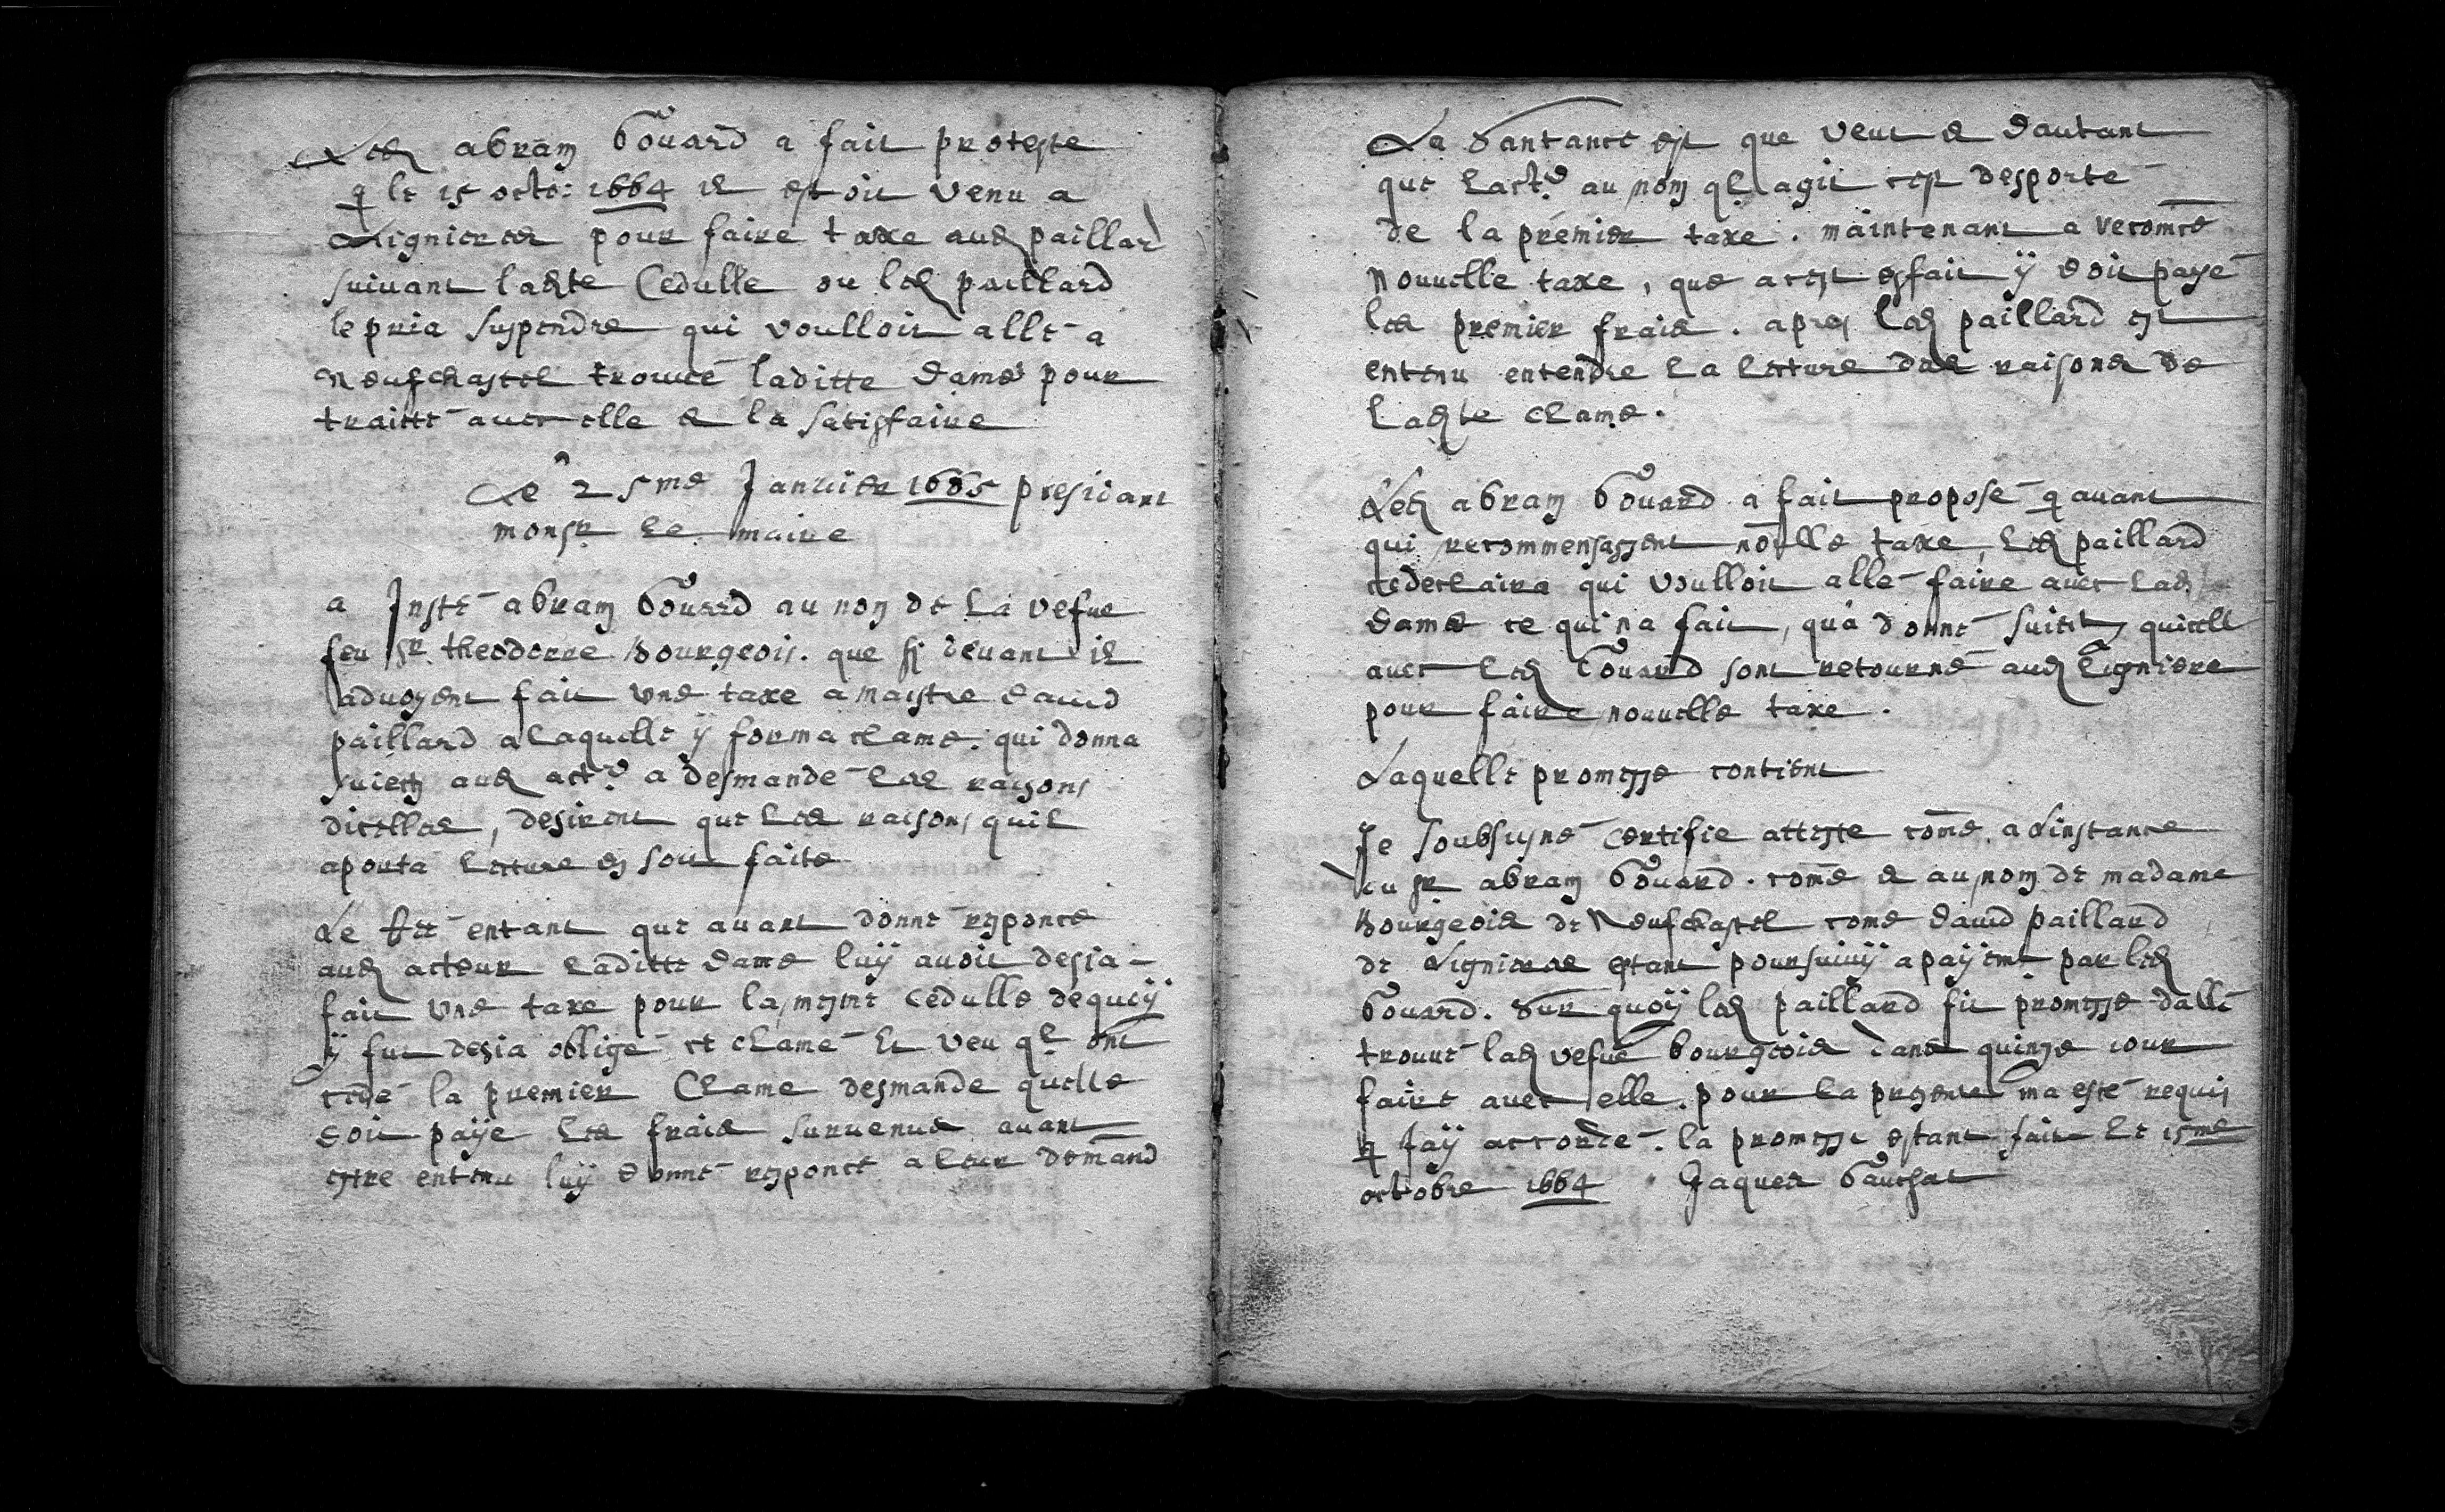 Led abram Bouard a fait proteste
q le 15 octo: 1664 il estoit venu a
Lignieres pour faire taxe aud paillard
suivant ladte Cedulle ou led paillard
le pria suspendre qui voulloit alle a
Neufchastel trouue laditte dame pour
traitte auec elle & la satisfaire
Le 25me Januier 1665 presidant
monsr le maire
a Inste abram Bouard au nom de la vefue
feu sr theodorre Bourgeois. que si deuant il
aduoyent fait vne taxe a maistre dauid
paillard a laquelle ÿ forma clame. qui donna
suiets aud actr a desmande les raisons
dicelles, desirent que les raisons quil
aporta lecture en soit faite
Le tte entant que auant donne responce
aud acteur laditte dame luÿ auoit desia
fait vne taxe pour la mesme cedulle dequoÿ
ÿ fut desia oblige et clame Et veu ql ont
cede la premier Clame desmande quelle
doit paÿe les frais suruenus auant
estre entenu luÿ donne responce a leur demand
La Santance est que veut & dautant
que lactr au nom ql agit cest desporte
de la premier taxe. maintenant a recomce
nouuelle taxe, que a cest esfait ÿ doit paye
les premier frais. apres led paillard est
entenu entendre la lecture des raisons de
ladte clame.
Led abram Bouard a fait propose q auant
qui recommensassent noulle taxe, led paillard
cedesclaira qui voulloit alle faire auec lad
dame ce qui na fait, qua donne suiets quicell
auec led Bouard sont retourne aud Ligniere
pour faire nouuelle taxe.
Laquelle promesse contient
Je soubsigne certifie atteste come a Linstance
du sr abram Bouard. come & au nom de madame
Bourgeois de Neufchastel come dauid paillard
de Lignieres estant poursuiuÿ a paÿemt par led
Bouard. Sur quoÿ led paillard fit promesse dalle
trouue lad vefue bourgeois dans quinze iour
faire auec elle. pour la presente ma este requis
q Jaÿ accorde. la promesse estant faite le 15me
octobre 1664 Jaques Gauchat